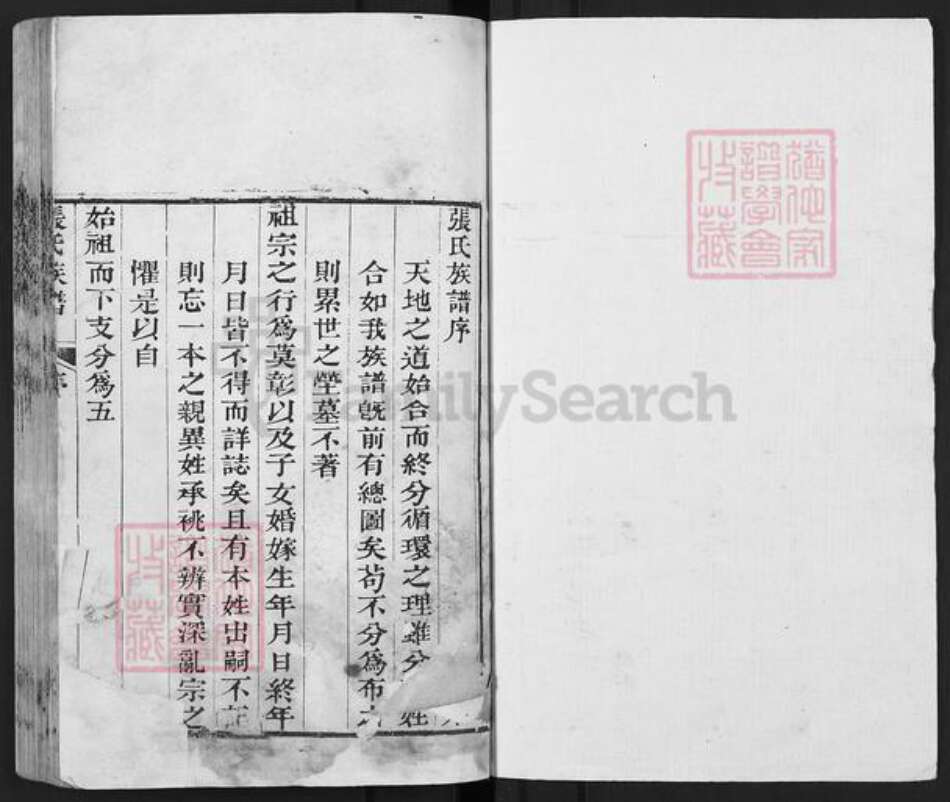 張氏族譜序
天地之道始合而終分循環之理雖分姓
合如我族譜既前有總圖矣苟不分爲布
則累世之塋墓不著
祖宗之行爲莫彰以及子女婚嫁生年月日終年
月日皆不得而詳誌矣且有本姓出嗣不
則忘一本之親異姓承祧不辨實深亂宗之
懼是以自
始祖而下支分爲五
張氏族譜
FamilySearch